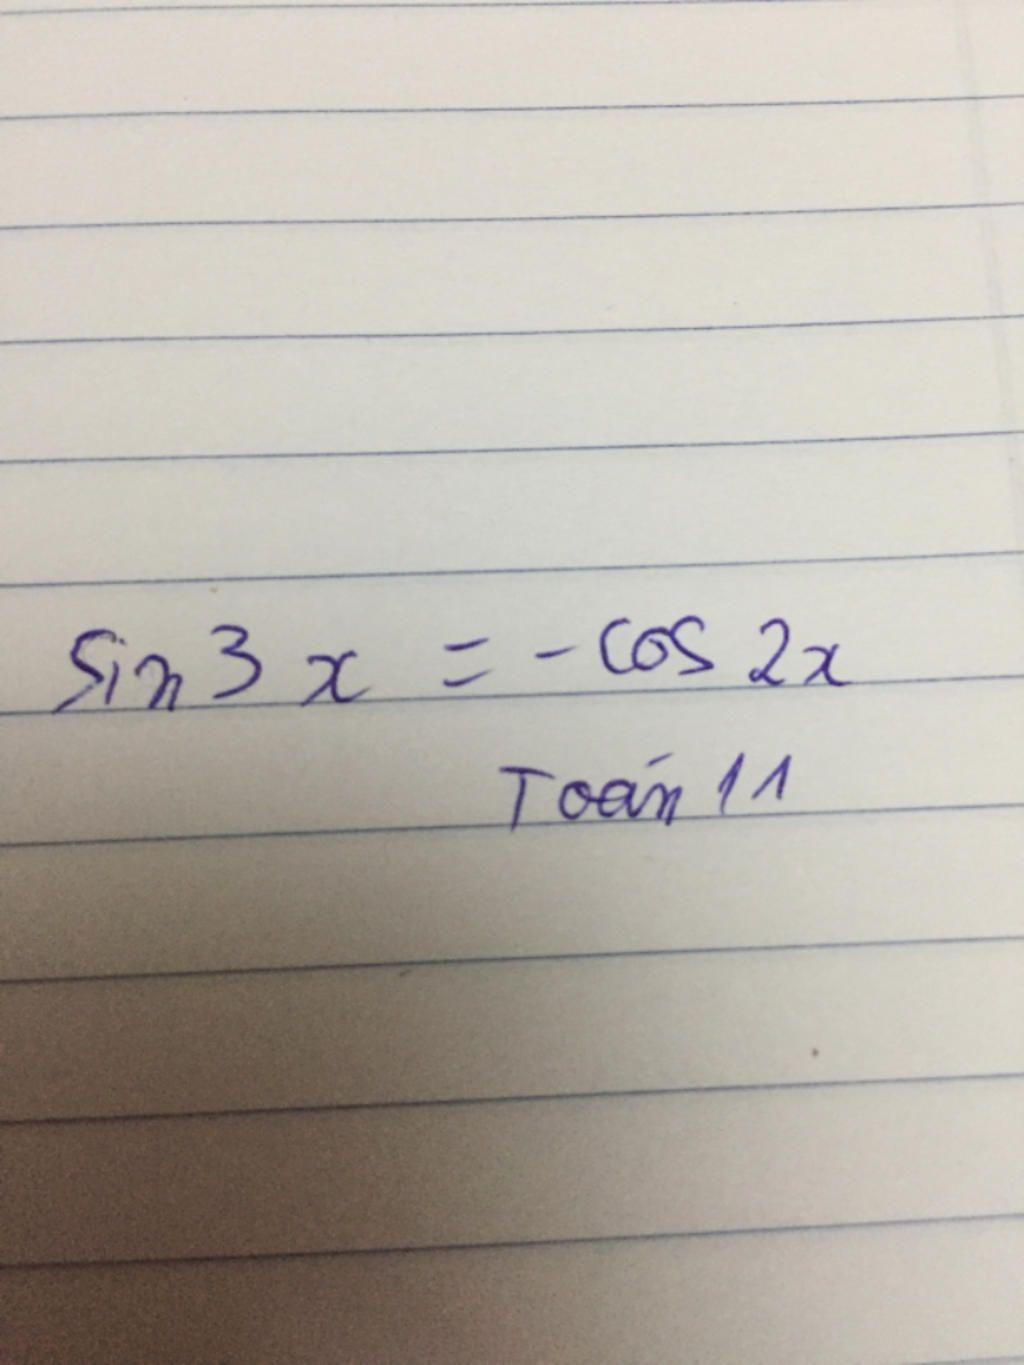 sin 3x = - cos 2x
Toán 11